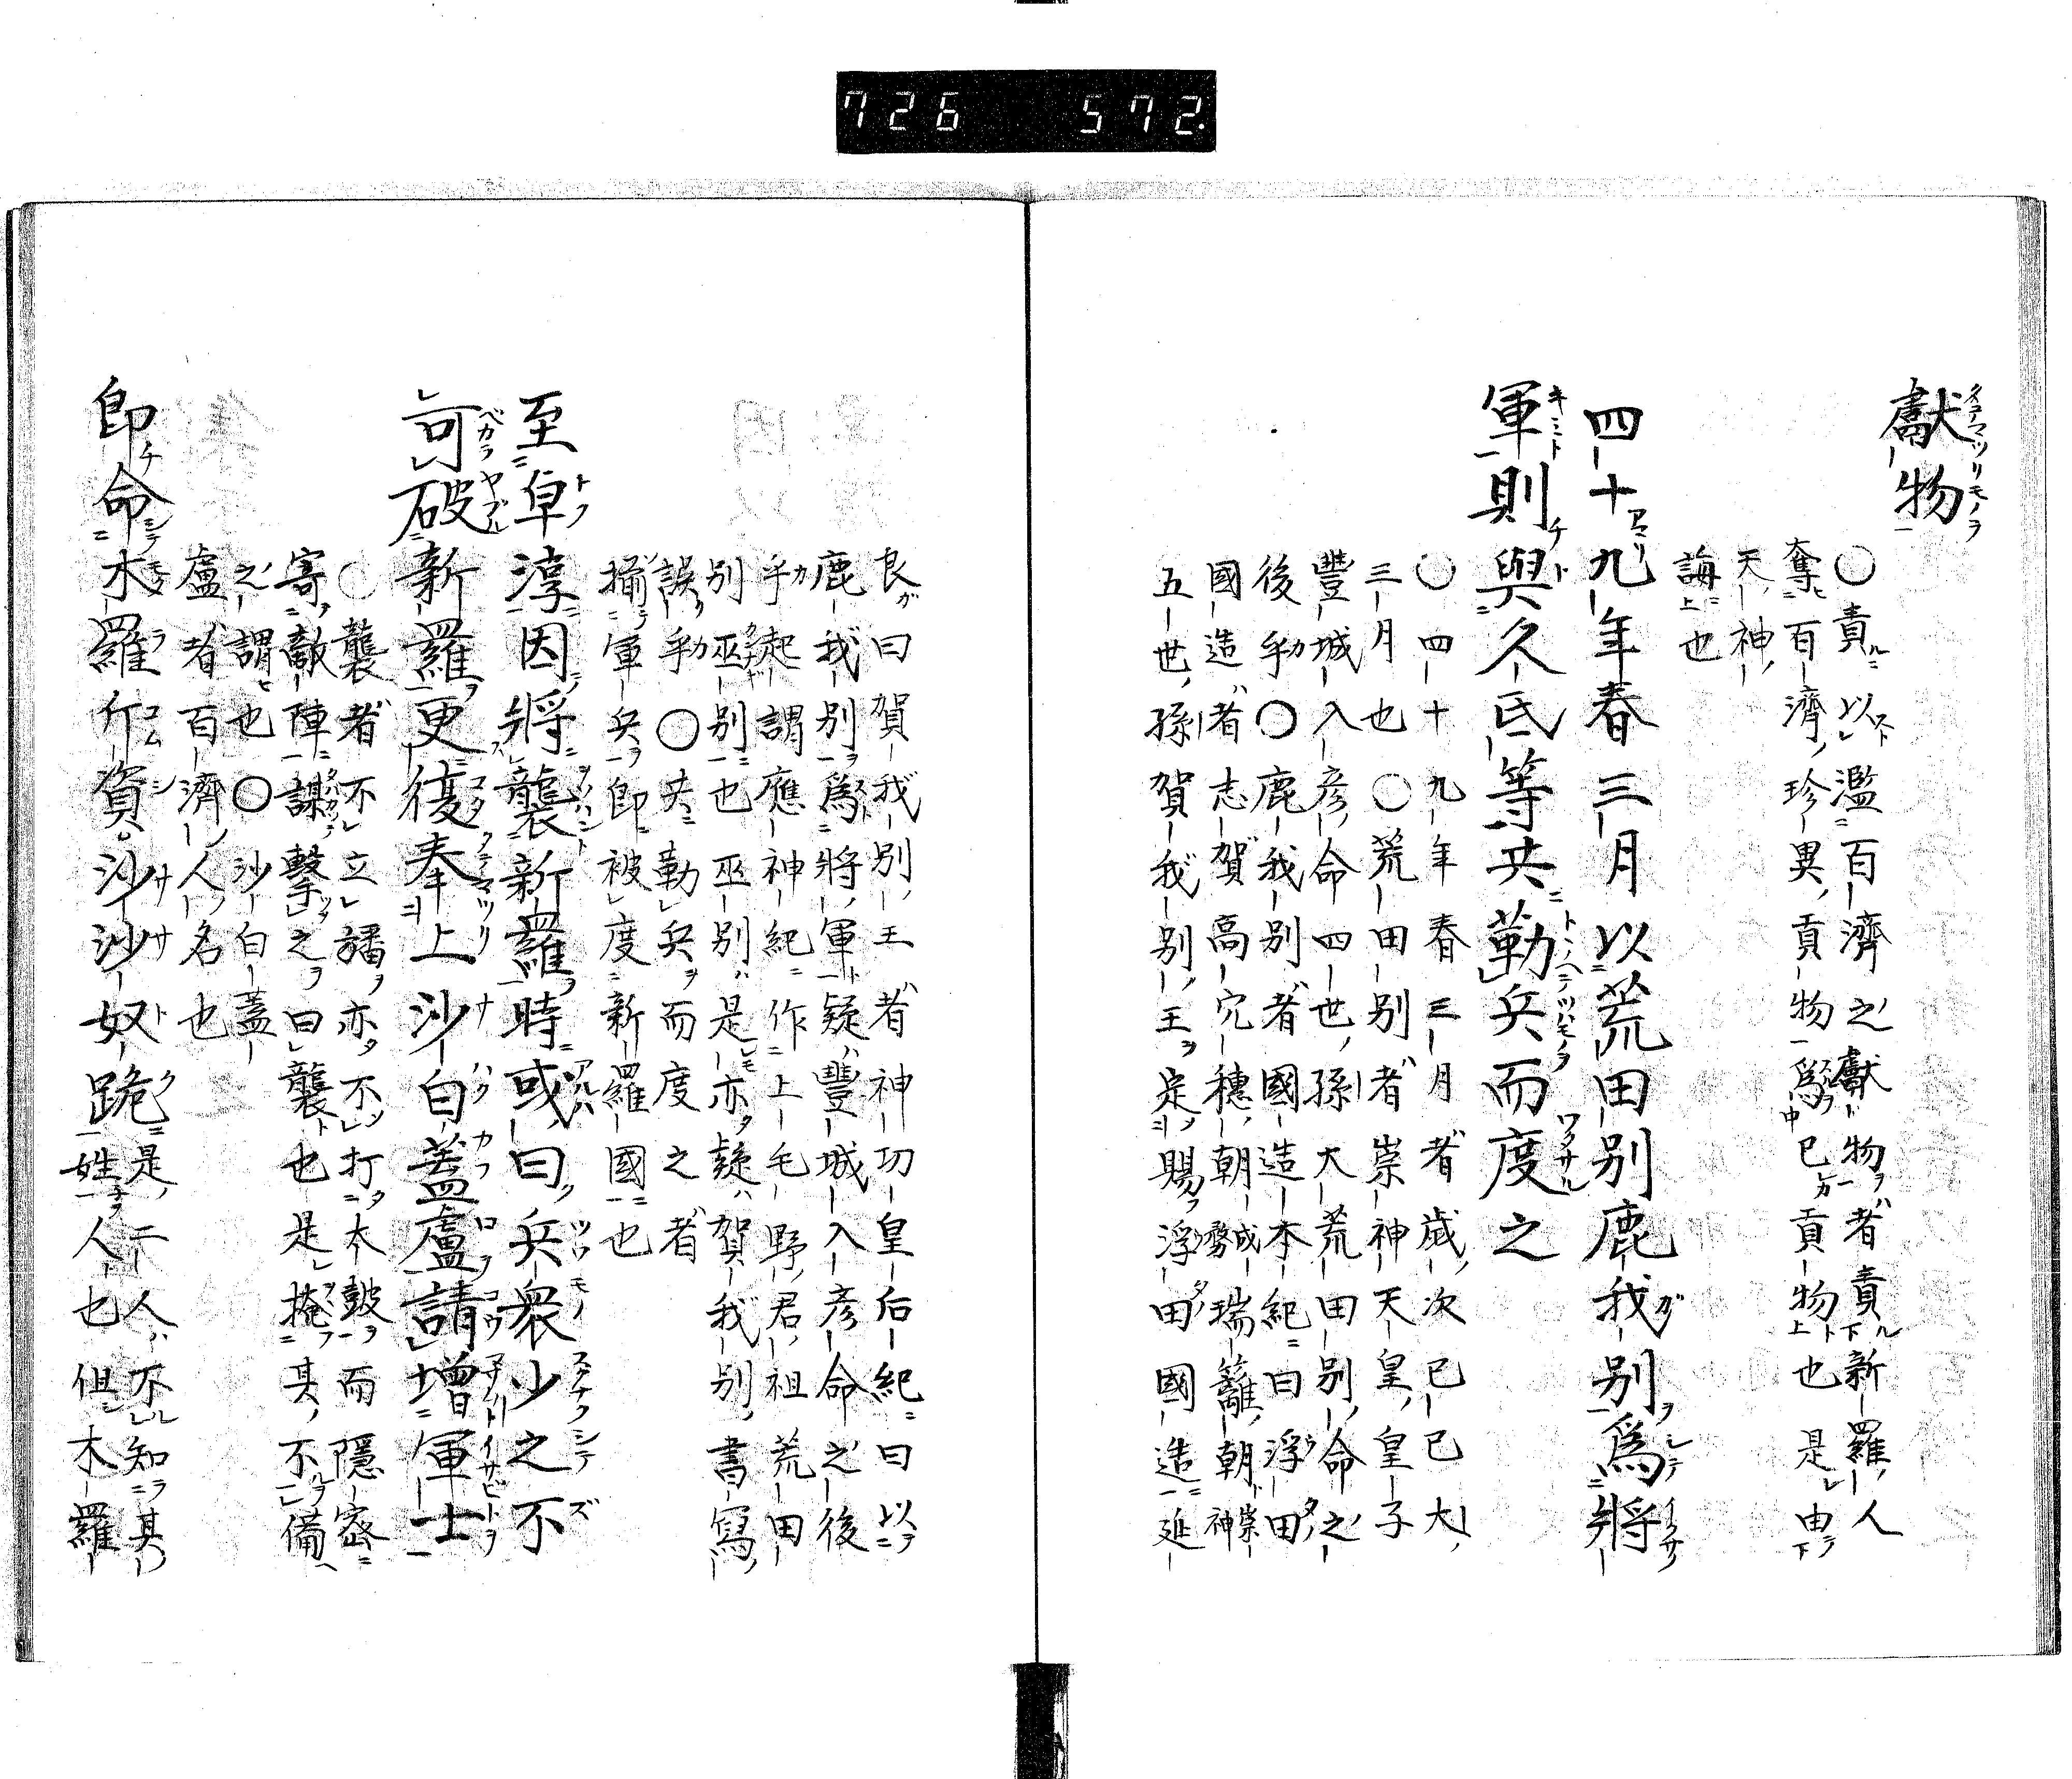 726 572
獻物
○責以濫百濟之獻物者責新羅人
奪百濟珍異貢物爲己貢物也是由
天神
誨也
四十九年春三月以荒田別鹿我別爲將
軍則與久氐等共勒兵而度之
○四十九年春三月者歳次己巳大
三月也○荒田別者崇神天皇皇子
豐城入彦命四世孫大荒田別命之
後乎○鹿我別者國造本紀曰浮田
國造者志賀高穴穗朝成務瑞籬朝崇神
五世孫賀我別王定賜浮田國造延
良曰賀我別王者神功皇后紀曰以
鹿我別爲將軍疑豐城入彦命之後
乎起謂應神紀作上毛野君祖荒田
別巫別也巫別是亦疑賀我別書寫
誤乎○共勒兵而度之者
揃軍兵即被度新羅國也
至卓淳因將襲新羅時或曰兵衆少之不
可破新羅更復奉上沙白蓋盧請增軍士
○襲者不立旛亦不打太鼓而隱密
寄敵陣謀擊之曰襲也是掩其不備
之謂也○沙白蓋
盧者百濟人名也
即命木羅斤資沙沙奴跪是二人不知其
姓人也但木羅